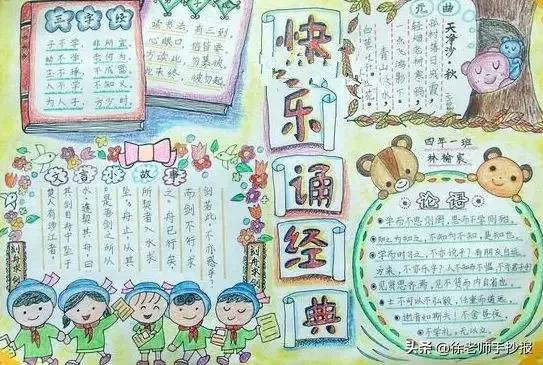 三字经
子不学 非所宜
幼不学 老何为
玉不琢 不成器
人不学 不知义
为人子 方少时
读书法,有三到
心眼口 信皆要
方读此 勿慕彼
此未终 彼勿起
快乐诵经典
元曲
天净沙·秋
孤村落日残霞,
轻烟老树寒鸦,
一点飞鸿影下。
青山绿水,
白草红叶黄花。
四年一班
文言小故事
刻舟求剑
楚人有涉江者,
其剑自舟中坠于
水,遽契其舟,曰
是吾剑之所从
坠。舟止,从其
所契者入水求
之。舟已行矣,
而剑不行,求
剑若此,不亦惑乎?
刻舟求剑
论语
学而不思则罔,思而不学则殆。
知之为知之,不知为不知,是知也。
学而时习之,不亦说乎?有朋自远
方来,不亦乐乎?人不知而不愠,不亦君子乎
见贤思齐焉,见不贤而内自省也
士不可以不弘毅,任重而道远。
逝者如斯夫!不舍昼夜
不学礼,无以立。
头条 @徐老师手抄报